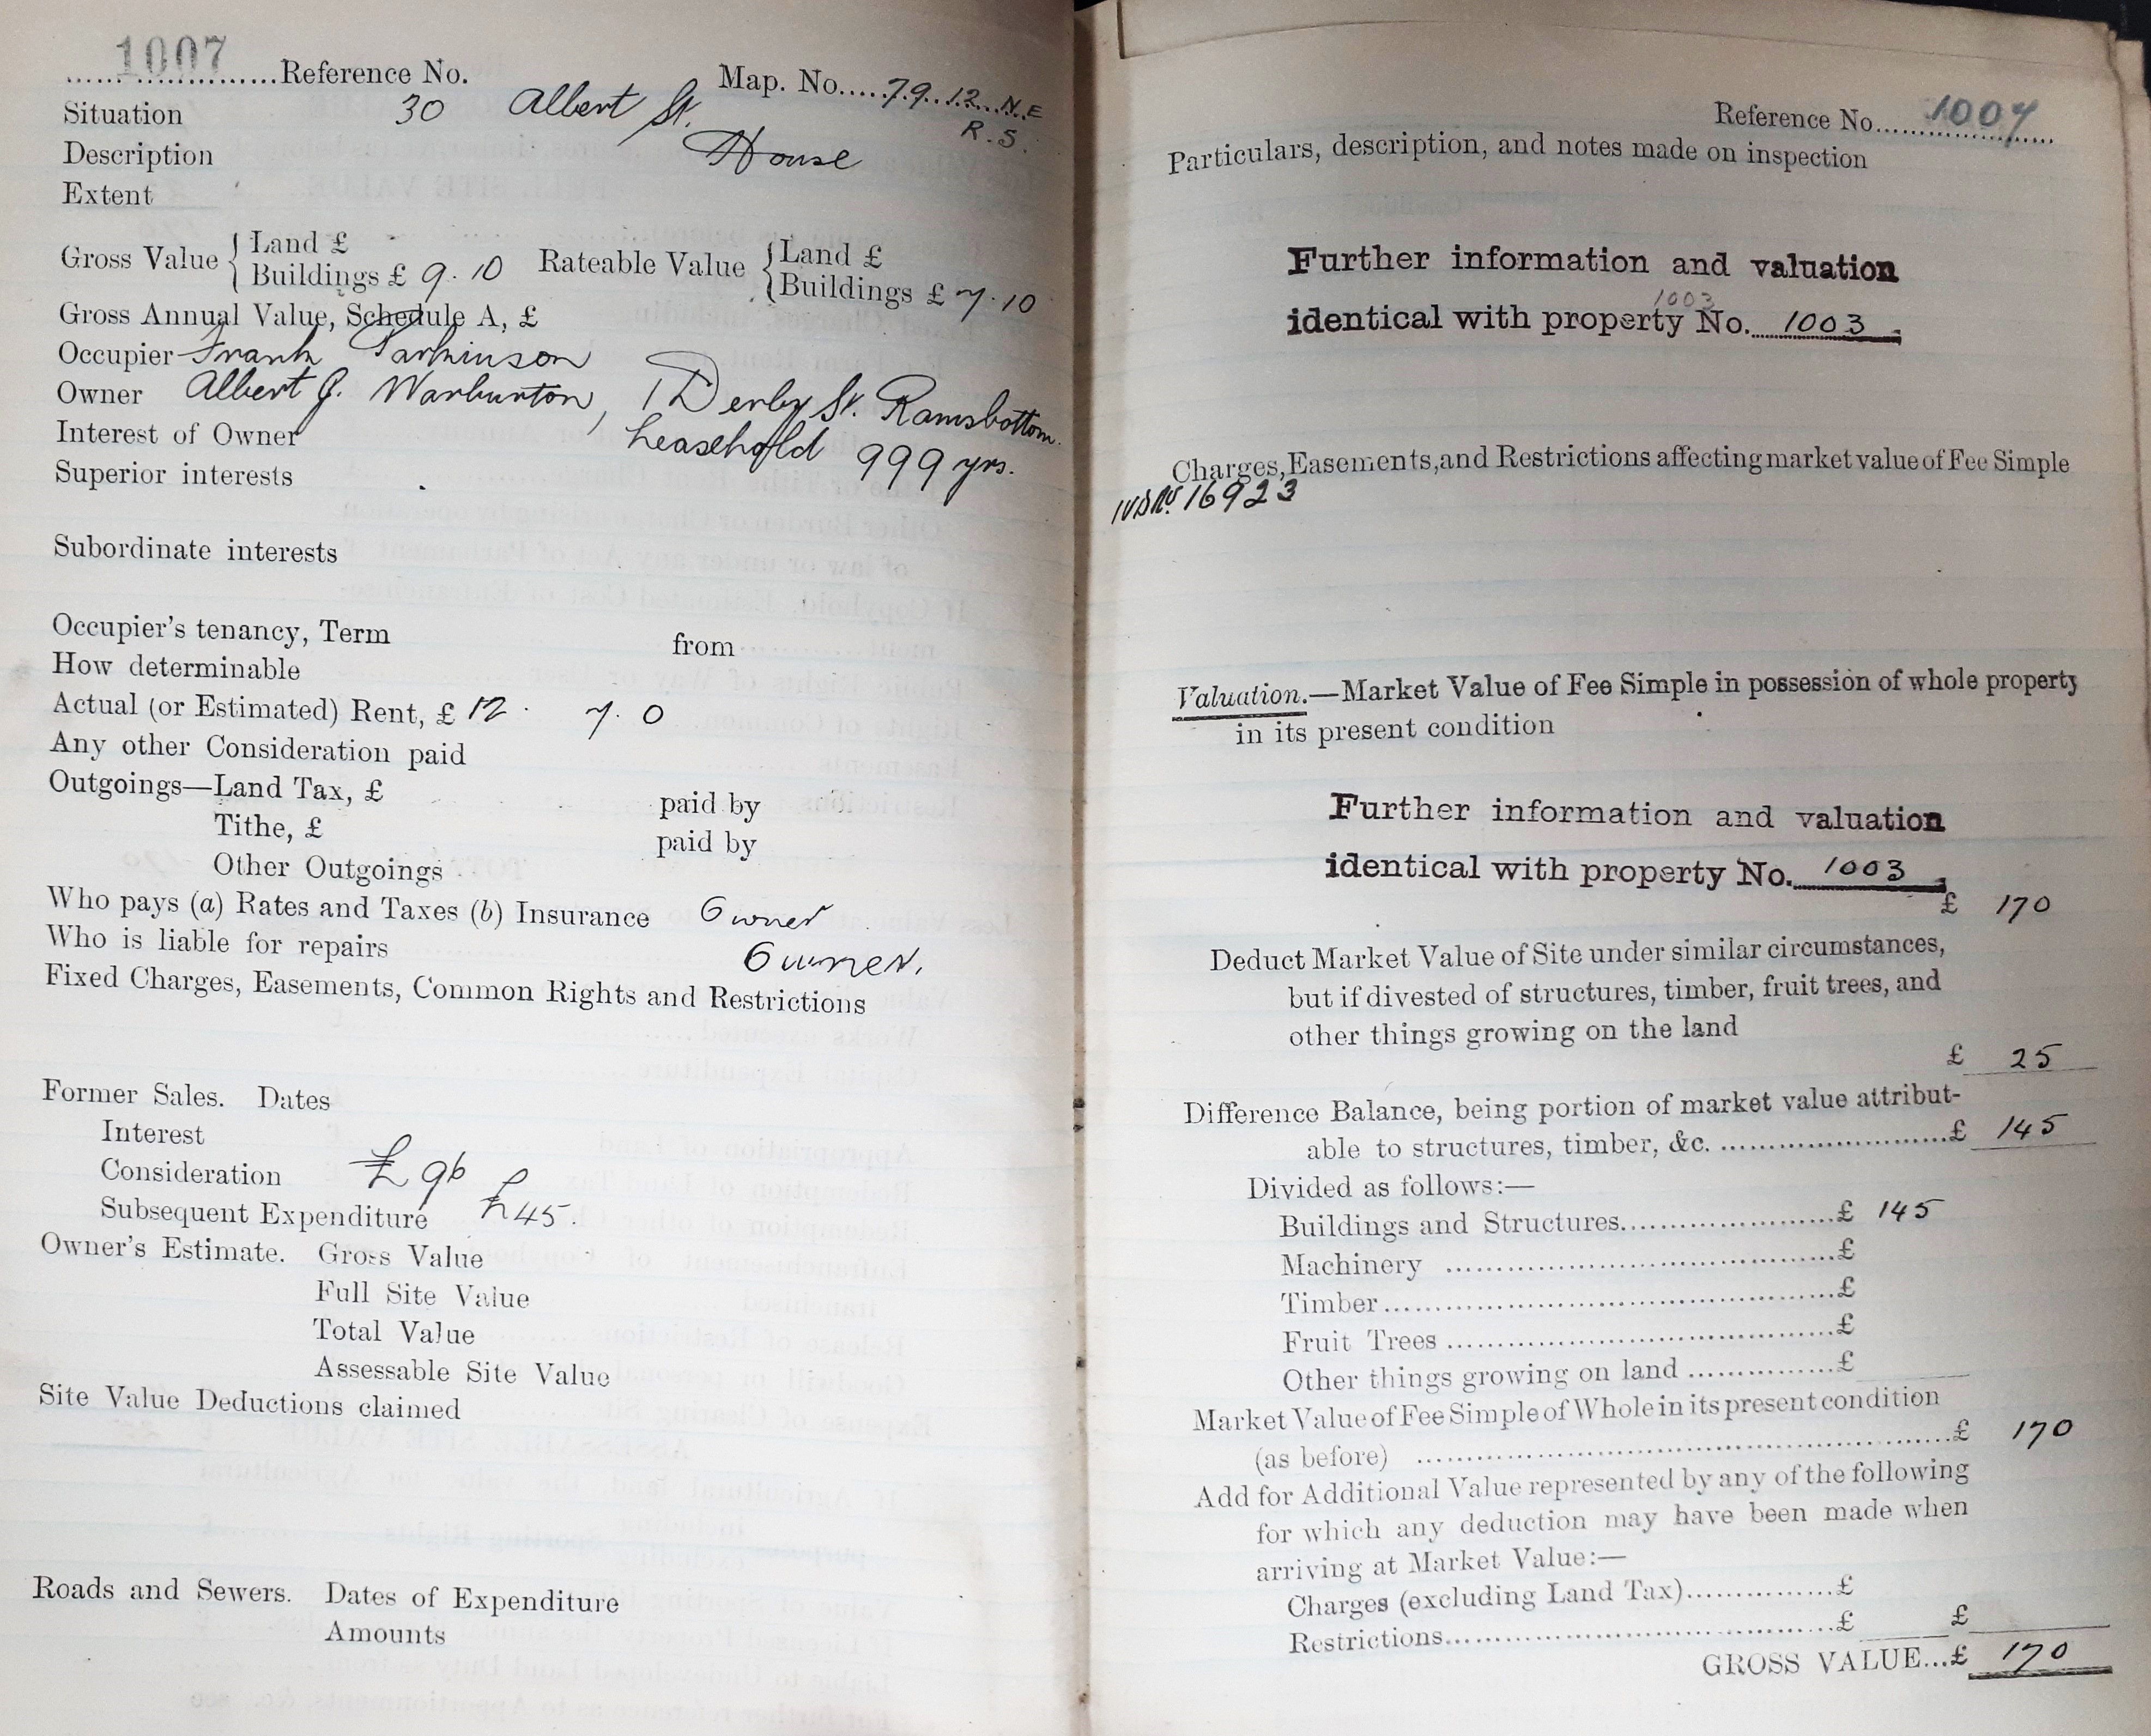 1007 Reference No. Map. No. 79.12 N.E
R.S.
Situation 30 Albert St.
Description House
Extent
Gross Value { Land £ Rateable Value { Land £
Buildings £ 9.10 Buildings £ 7.10
Gross Annual Value, Schedule A, £
Occupier Frank Parkinson
Owner Albert J. Warburton, 1 Derby St. Ramsbottom.
Interest of Owner Leasehold 999 yrs.
Superior interests
Subordinate interests
Occupier's tenancy, Term from
How determinable
Actual (or Estimated) Rent, £ 12. 7. 0
Any other Consideration paid
Outgoings—Land Tax, £ paid by
Tithe, £ paid by
Other Outgoings
Who pays (a) Rates and Taxes (b) Insurance Owner
Who is liable for repairs Owner.
Fixed Charges, Easements, Common Rights and Restrictions
Former Sales. Dates
Interest
Consideration £96
Subsequent Expenditure £45.
Owner's Estimate. Gross Value
Full Site Value
Total Value
Assessable Site Value
Site Value Deductions claimed
Roads and Sewers. Dates of Expenditure
Amounts
Reference No. 1007
Particulars, description, and notes made on inspection
Further information and valuation
1003
identical with property No. 1003.
Charges, Easements, and Restrictions affecting market value of Fee Simple
IVD No. 16923
Valuation.—Market Value of Fee Simple in possession of whole property
in its present condition
Further information and valuation
identical with property No. 1003.
£ 170
Deduct Market Value of Site under similar circumstances,
but if divested of structures, timber, fruit trees, and
other things growing on the land
£ 25
Difference Balance, being portion of market value attribut-
able to structures, timber, &c. £ 145
Divided as follows:—
Buildings and Structures £ 145
Machinery £
Timber £
Fruit Trees £
Other things growing on land £
Market Value of Fee Simple of Whole in its present condition
(as before) £ 170
Add for Additional Value represented by any of the following
for which any deduction may have been made when
arriving at Market Value:—
Charges (excluding Land Tax) £
Restrictions £ £
GROSS VALUE...£ 170